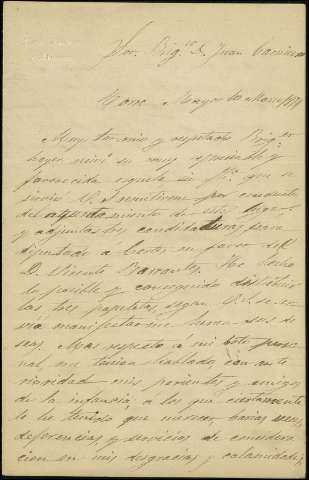 Sor. Brigr. D. Juan
Torre Mayor 10 Marzo 1871
Muy Sr. mio y respetado Brigr.
ayer recibí su muy apreciable y
favorecida esquela su fha. que se
sirvió V. S. remitirme por conducto
del ayuntamiento de este lugar,
y adjuntas las candidaturas para
diputado á Cortes en favor del
D. Vicente Barrantes. He hecho
lo posible y conseguido distribuir
las tres papeletas segun V. S. se ser-
via manifestarme buenos sus de
seos. Mas respeto á mi boto perso
nal, me tenian hablado con ante
rioridad mis parientes y amigos
de la infancia, á los que ciertamente
le he tenido que merecer, barias veces,
deferencias, y servicios de considera
cion en mis desgracias y calamidades,